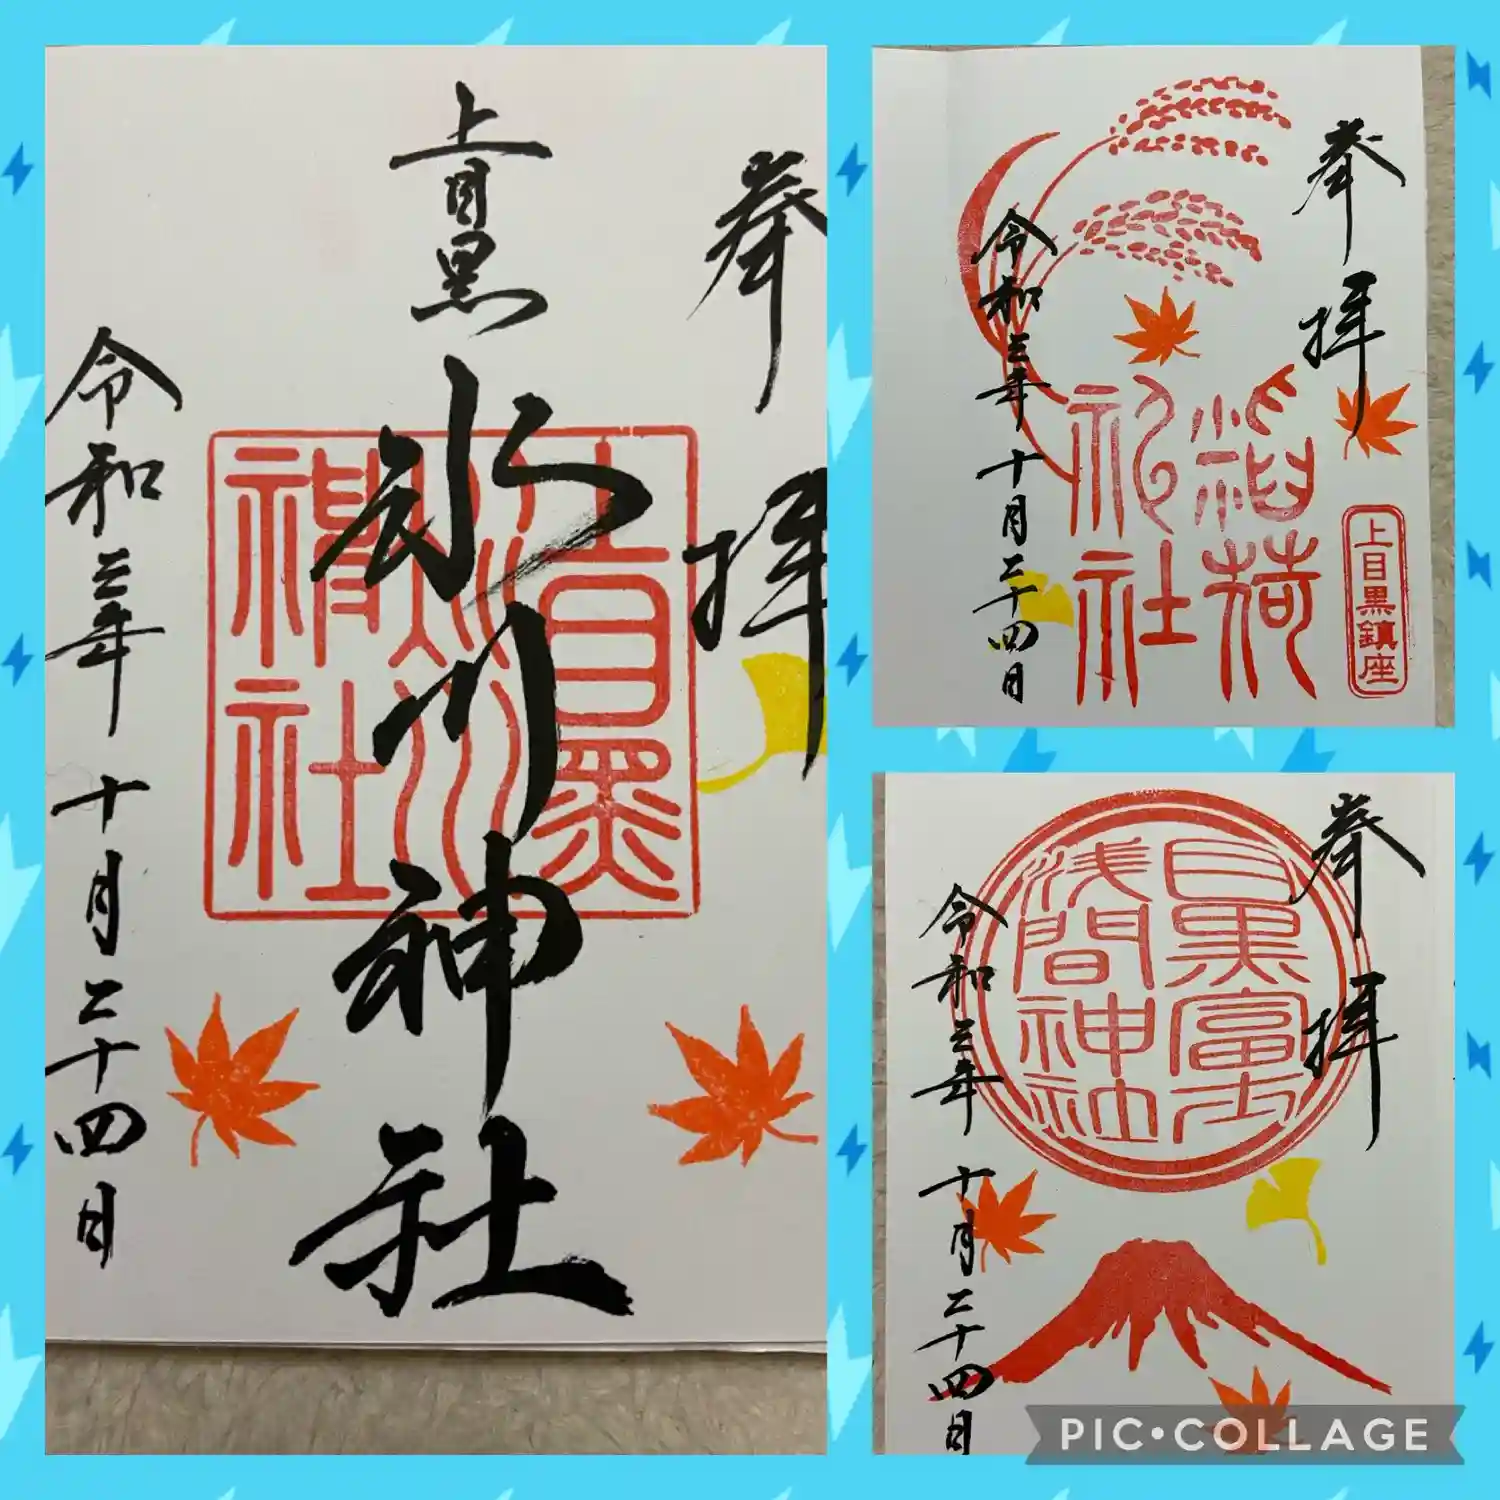 奉拝
上目黒
氷川神社
上目黒氷川神社
令和三年十月二十四日
奉拝
稲荷神社
上目黒鎮座
令和三年十月二十四日
奉拝
目黒富士
浅間神社
令和三年十月二十四日
PIC•COLLAGE